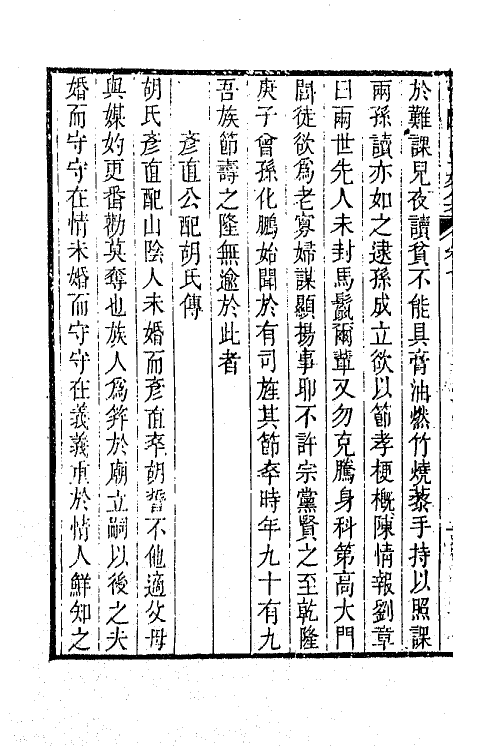 於難課兒夜讀貧不能具膏油燃竹燒藜手持以照課
兩孫讀亦如之逮孫成立欲以節孝梗槪陳情報劉章
曰兩世先人未封馬鬛爾輩又勿克騰身科第高大門
閭徒欲爲老寡婦謀顯揚事耶不許宗黨賢之至乾隆
庚子曾孫化鵬始聞於有司旌其節卒時年九十有九
吾族節壽之隆無逾於此者
彥直公配胡氏傳
胡氏彥直配山陰人未婚而彥直卒胡誓不他適父母
與媒妁更番勸莫奪也族人爲筓於廟立嗣以後之夫
婚而守守在情未婚而守守在義義重於情人鮮知之